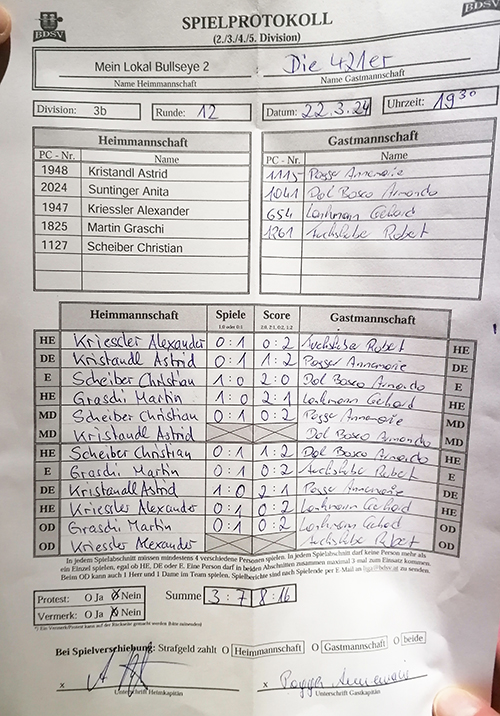 BDSV
SPIELPROTOKOLL
BDSV
(2./3./4./5. Division)
Mein Lokal Bullseye 2 Die 421er
Name Heimmannschaft Name Gastmannschaft
Division: 3b Runde: 12 Datum: 22.3.24 Uhrzeit: 19 30
Heimmannschaft Gastmannschaft
PC - Nr. Name PC - Nr. Name
1948 Kristandl Astrid 1115 Posser Annemarie
2024 Suntinger Anita 1041 Dal Bosco Armando
1947 Kriessler Alexander 654 Lonkmann Gehard
1825 Martin Graschi 1261 Robert
1127 Scheiber Christian
Heimmannschaft Spiele Score Gastmannschaft
1:0 oder 0:1 2:0, 2:1, 0:2, 1:2
HE Kriessler Alexander 0:1 0:2 Robert HE
DE Kristandl Astrid 0:1 1:2 Posser Annemarie DE
E Scheiber Christian 1:0 2:0 Dal Bosco Armando E
HE Graschi Martin 1:0 2:1 Lonkmann Gehard HE
MD Scheiber Christian 0:1 0:2 Posser Annemarie MD
MD Kristandl Astrid Dal Bosco Armando MD
HE Scheiber Christian 0:1 1:2 Dal Bosco Armando HE
E Graschi Martin 0:1 0:2 Robert E
DE Kristandl Astrid 1:0 2:1 Posse Annemarie DE
HE Kriessler Alexander 0:1 0:2 Lonkmann Gehard HE
OD Graschi Martin 0:1 0:2 Lonkmann Gehard OD
OD Kriessler Alexander Robert OD
In jedem Spielabschnitt müssen mindestens 4 verschiedene Personen spielen. In jedem Spielabschnitt darf keine Person mehr als
ein Einzel spielen, egal ob HE, DE oder E. Eine Person darf in beiden Abschnitten zusammen maximal 3 mal zum Einsatz kommen.
Beim OD kann auch 1 Herr und 1 Dame im Team spielen. Spielberichte sind nach Spielende per E-Mail an liga@bdsv.at zu senden.
Protest: O Ja O Nein Summe 3 : 7 8 : 16
Vermerk: O Ja O Nein
*) Ein Vermerk/Protest kann auf der Rückseite gemacht werden
Bei Spielverschiebung: Strafgeld zahlt O Heimmannschaft O Gastmannschaft O beide
x x Posser Annemarie
Unterschrift Heimkapitän Unterschrift Gastkapitän